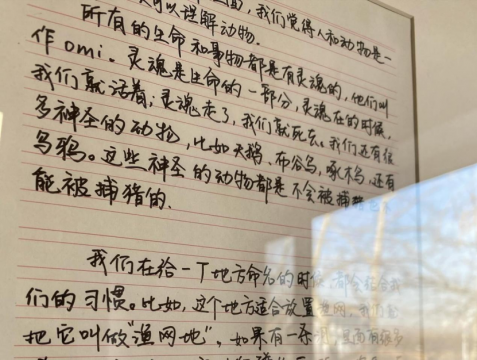 可以理解动物.
面，我们觉得人和动物是一
所有的生命和事物都是有灵魂的，他们叫
作omi。灵魂是生命的一部分，灵魂在的时候，
我们就活着；灵魂走了，我们就死去。我们还有很
多神圣的动物，比如天鹅、布谷鸟，啄木鸟，还有
乌鸦。这些神圣的动物都是不会被捕
能被捕猎的.
我们在给一个地方命名的时候，都会结合我
们的习惯。比如，这个地方适合放置渔网，我们
把它叫做"渔网地"，如果有一条河，里面有很多